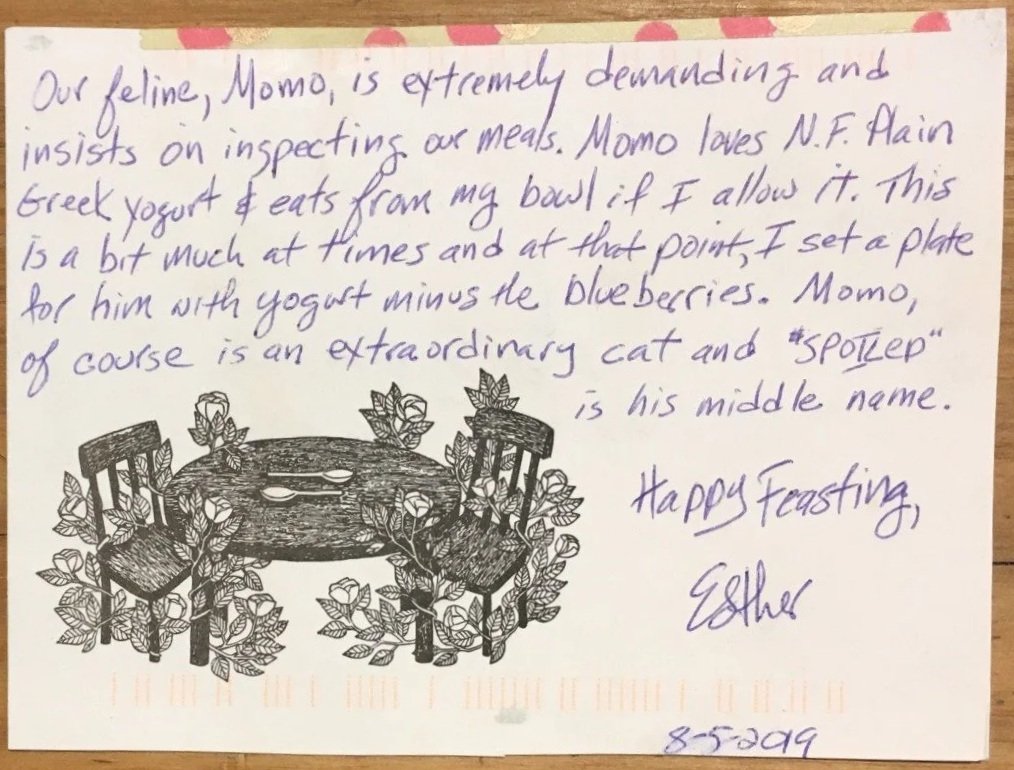 Our feline, Momo, is extremely demanding and
insists on inspecting our meals. Momo loves N.F. Plain
Greek yogurt & eats from my bowl if I allow it. This
is a bit much at times and at that point, I set a plate
for him with yogurt minus the blueberries. Momo,
of course is an extraordinary cat and "SPOILED"
is his middle name.
Happy Feasting,
Esther
8-5-2019